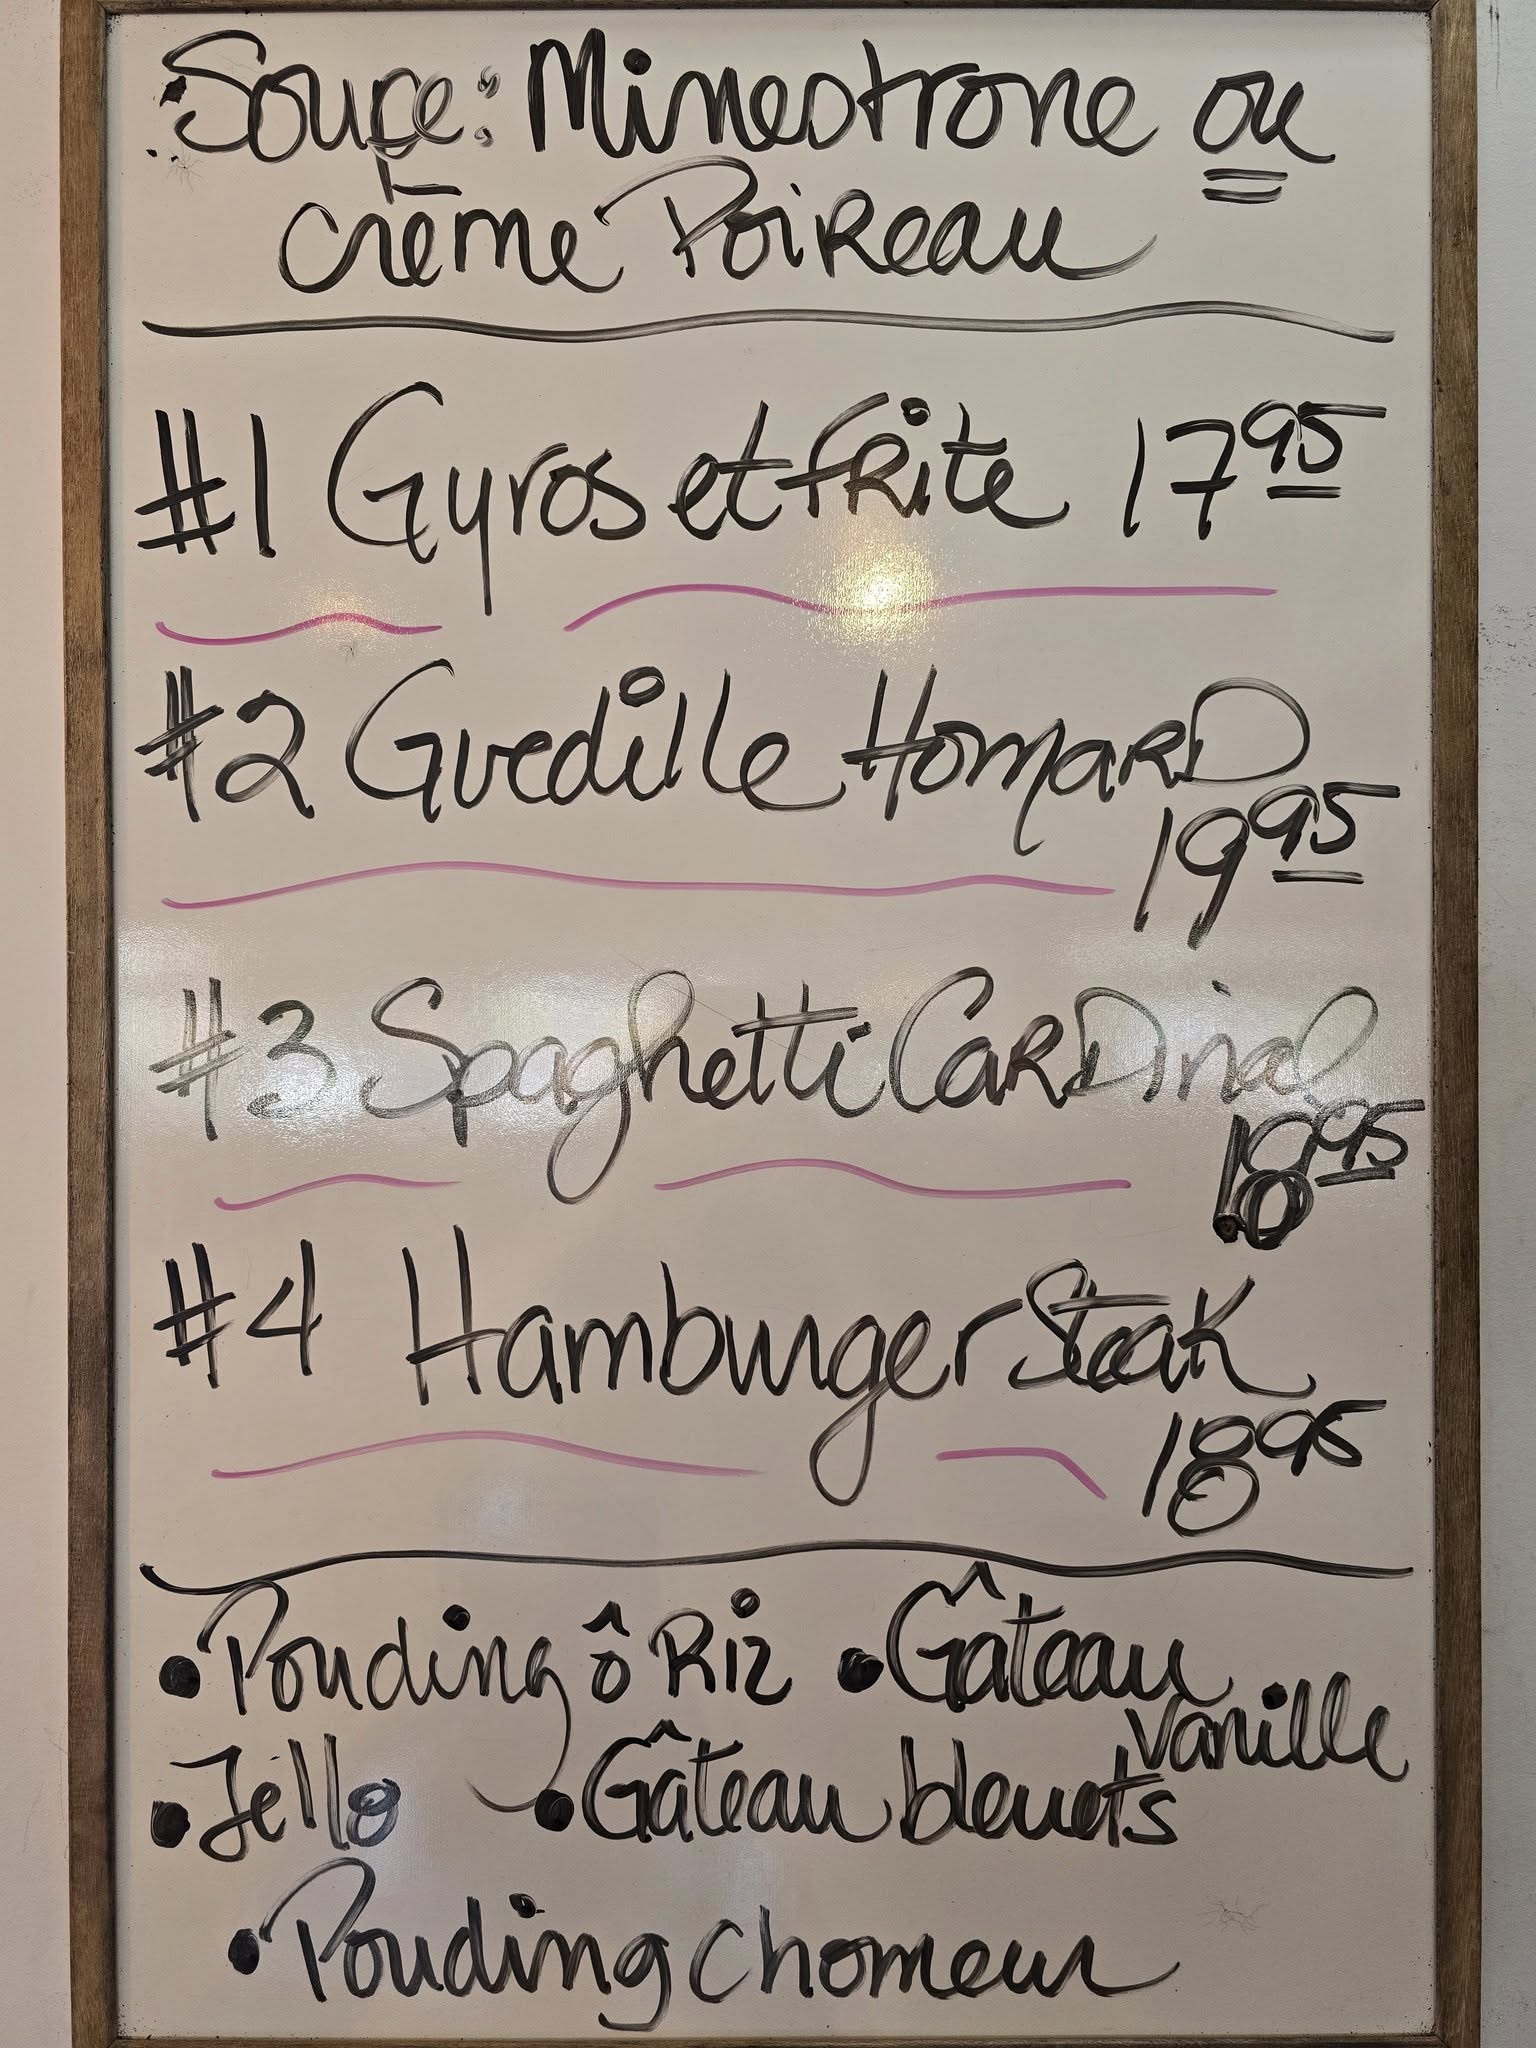 Soupe: Minestrone ou
crème Poireau
#1 Gyros et frite 17 95
#2 Guedille Homard
19 95
#3 Spaghetti Cardinal
18 95
#4 Hamburger Steak
18 95
• Pouding ô Riz • Gâteau
vanille
• Jello • Gâteau bleuets
• Pouding chomeur